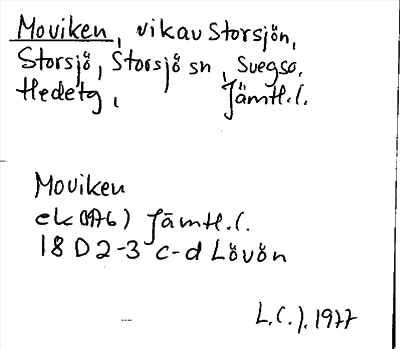 Moviken, vik av Storsjön,
Storsjö, Storsjö sn, Svegso.
Hedetg, Jämtl.l.
Moviken
ek (1976) Jämtl.l.
18 D 2-3 c-d Lövön
L.C.J. 1977